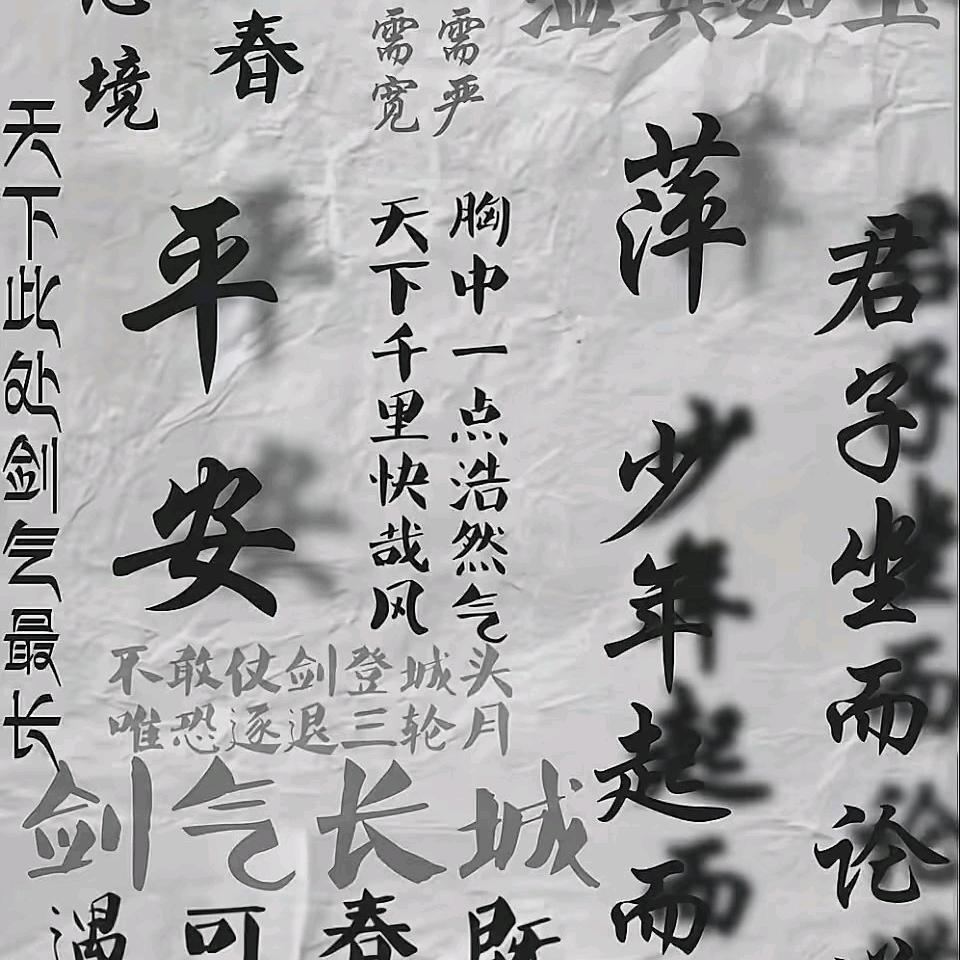 温其如玉
君子坐而论
萍
少年起而
需严
需宽
胸中一点浩然气
天下千里快哉风
春
平安
境
天下此处剑气最长
不敢仗剑登城头
唯恐逐退三轮月
剑气长城
遇可春既